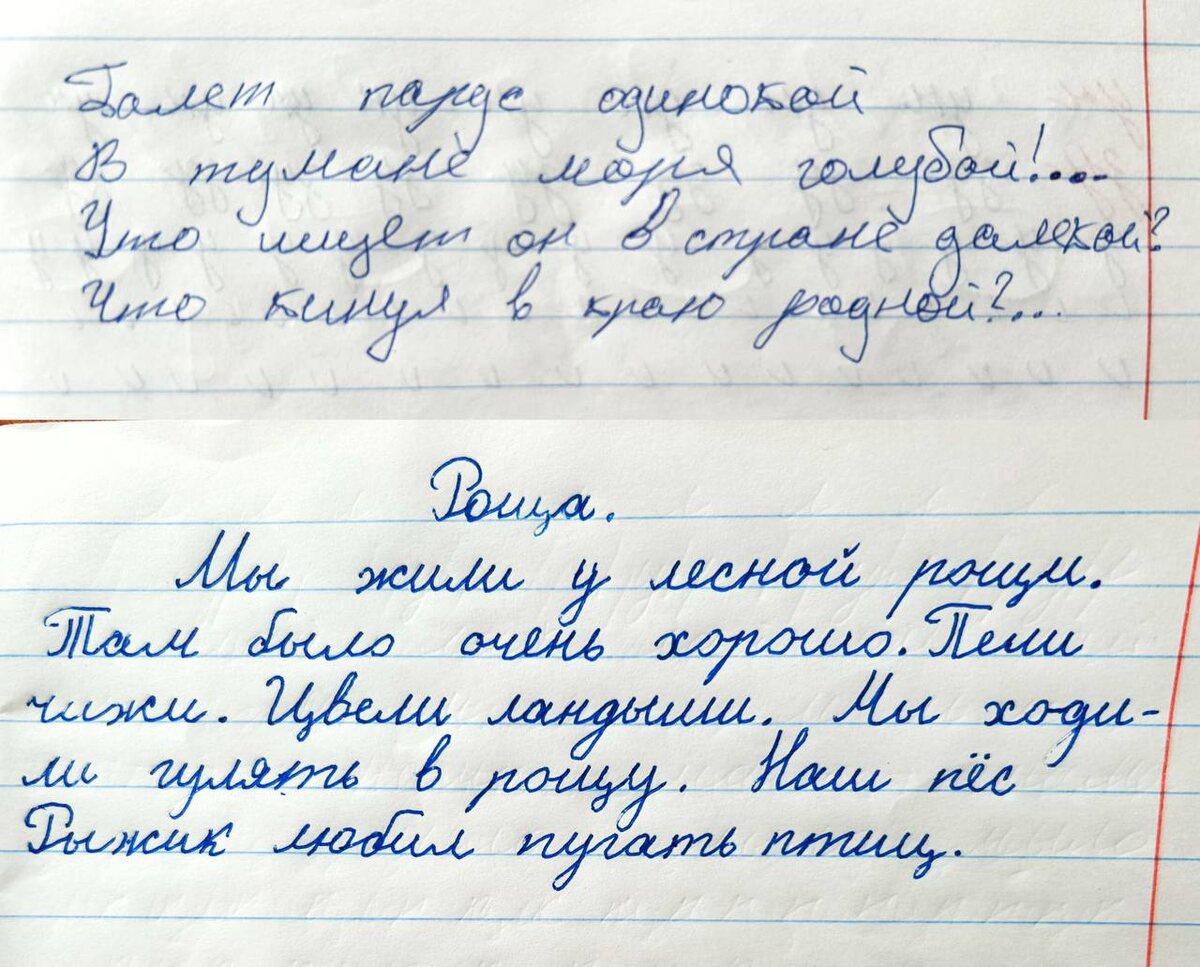 Балет парус одинокой
В тумане моря голубой!....
Что ищет он в стране далекой?
Что кинул в краю родной?...
Роща.
Мы жили у лесной рощи.
Там было очень хорошо. Пели
чижи. Цвели ландыши. Мы ходи-
ли гулять в рощу. Наш пёс
Рыжик любил пугать птиц.